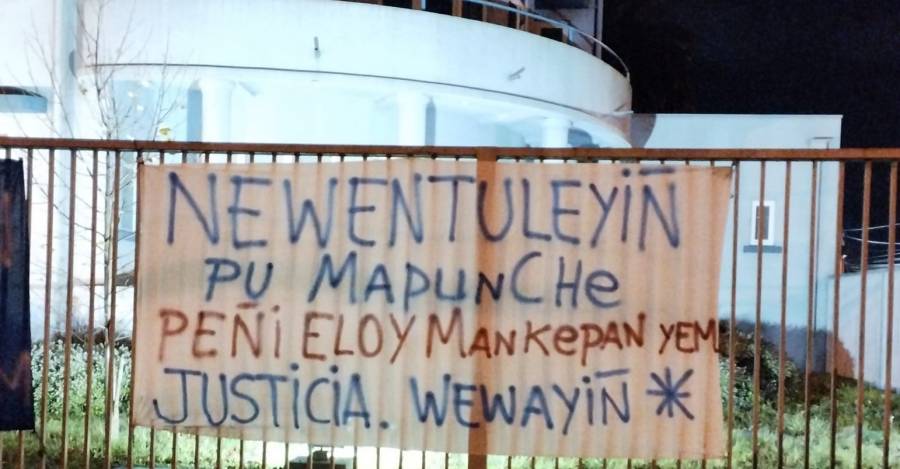 NEWENTULEYiÑ
PU MAPUNCHe
PEÑi ELOY MANKePAN YEM
JUSTiCiA. WEWAYiÑ *